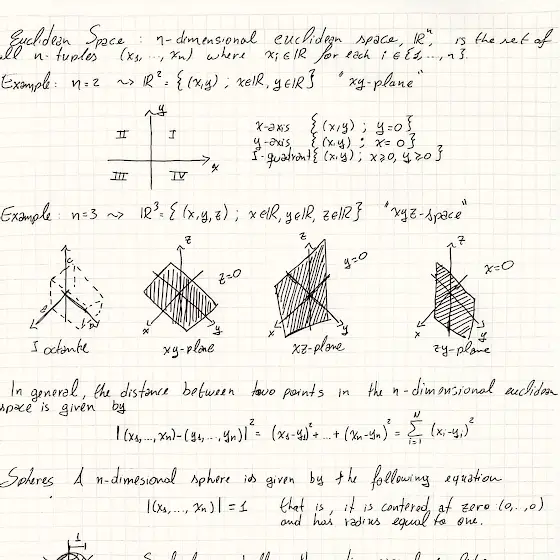 Euclidean Space : n-dimensional euclidean space, ℝⁿ, is the set of
all n-tuples (x₁, ..., xₙ) where xᵢ∈ℝ for each i∈{1,...,n}.
Example: n=2 ⤳ ℝ²={(x,y) ; x∈ℝ, y∈ℝ} "xy-plane"
y
II I
x
III IV
x-axis {(x,y) ; y=0}
y-axis {(x,y) ; x=0}
I-quadrant{(x,y) ; x≥0, y≥0}
Example: n=3 ⤳ ℝ³={(x,y,z) ; x∈ℝ, y∈ℝ, z∈ℝ} "xyz-space"
I octante
z
z=0
x y
xy-plane
z
y=0
x y
xz-plane
z
x=0
x y
zy-plane
In general, the distance between two points in the n-dimensional euclidean
space is given by
|(x₁,...,xₙ)-(y₁,...,yₙ)|² = (x₁-y₁)²+...+(xₙ-yₙ)² = ∑ᵢ₌₁ᴺ (xᵢ-yᵢ)²
Spheres A n-dimesional sphere is given by the following equation
|(x₁,...,xₙ)| = 1 that is, it is centered at zero (0,..,0)
and has radius equal to one.
1